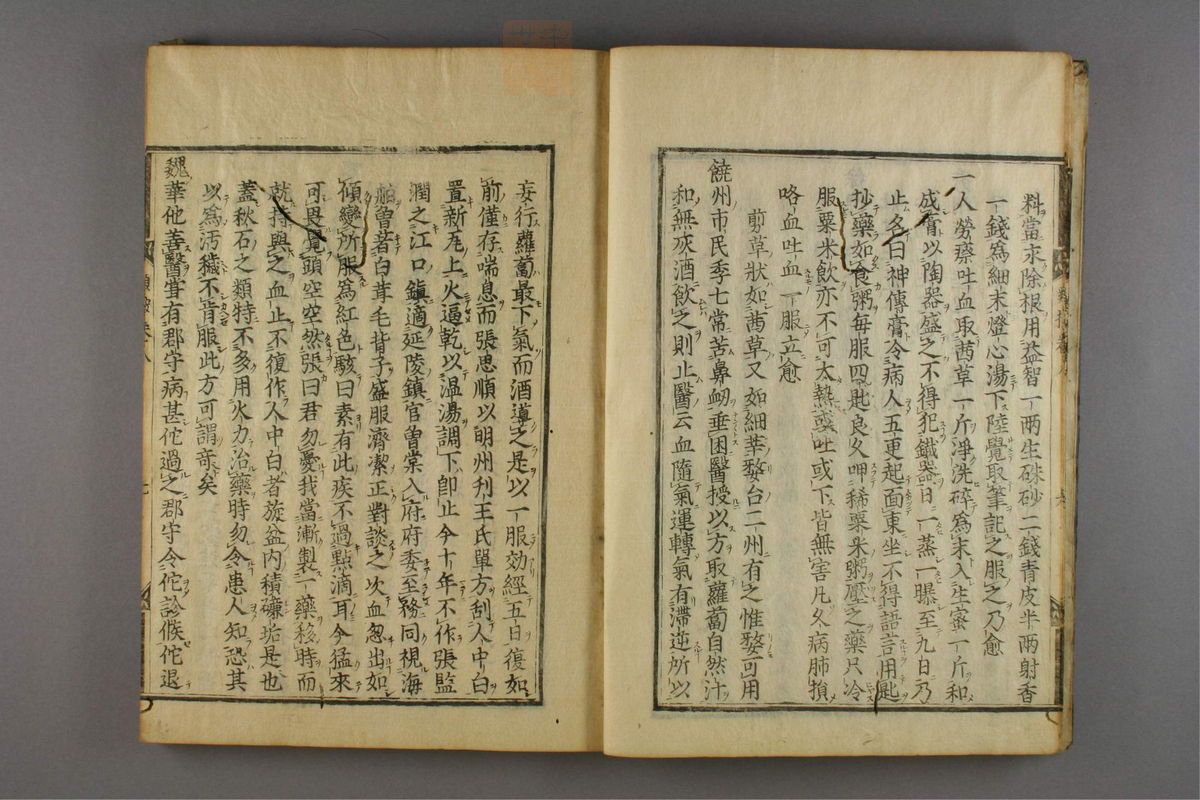 料當求除根用益智一兩生硃砂二錢青皮半兩射香
一錢爲細末燈心湯下陸覺取筆記之服之乃愈
一人勞瘵吐血取茜草一斤淨洗碎爲末入生蜜一斤和
成膏以陶器盛之不得犯鐵器日一蒸一曝至九日乃
止名曰神傳膏令病人五更起面東坐不得語言用匙
抄藥如食粥每服四匙良久呷稀粟米粥壓之藥只冷
服粟米飲亦不可太熱或吐或下皆無害凡久病肺損
咯血吐血一服立愈
剪草狀如茜草又如細莘婺台二州有之惟婺可用
饒州市民李七常苦鼻衂垂困醫授以方取蘿蔔自然汁
和無灰酒飲之則止醫云血隨氣運轉氣有滯逆所以
妄行蘿蔔最下氣而酒導之是以一服効經五日復如
前僅存喘息而張思順以明州刊王氏單方刮人中白
置新瓦上火逼乾以温湯調下卽止今十年不作張監
潤之江口鎮適延陵鎮官曾棠入府府委至務同視海
舶曾著白茸毛背子盛服濟潔正對談之次血忽出如
傾變所服爲紅色駭曰素有此疾不過點滴耳今猛來
可畏覺頭空空然張曰君勿憂我當漸製一藥移時而
就持與之血止不復作人中白者旋盆內積磏垢是也
蓋秋石之類特不多用火力治藥時勿令患人知恐其
以爲汚穢不肯服此方可謂奇矣
魏華佗善醫甞有郡守病甚佗過之郡守令佗診候佗退